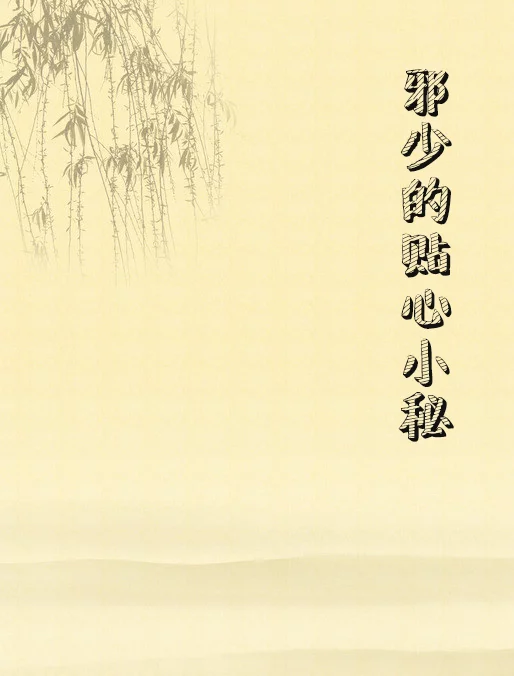 邪少的贴心小秘